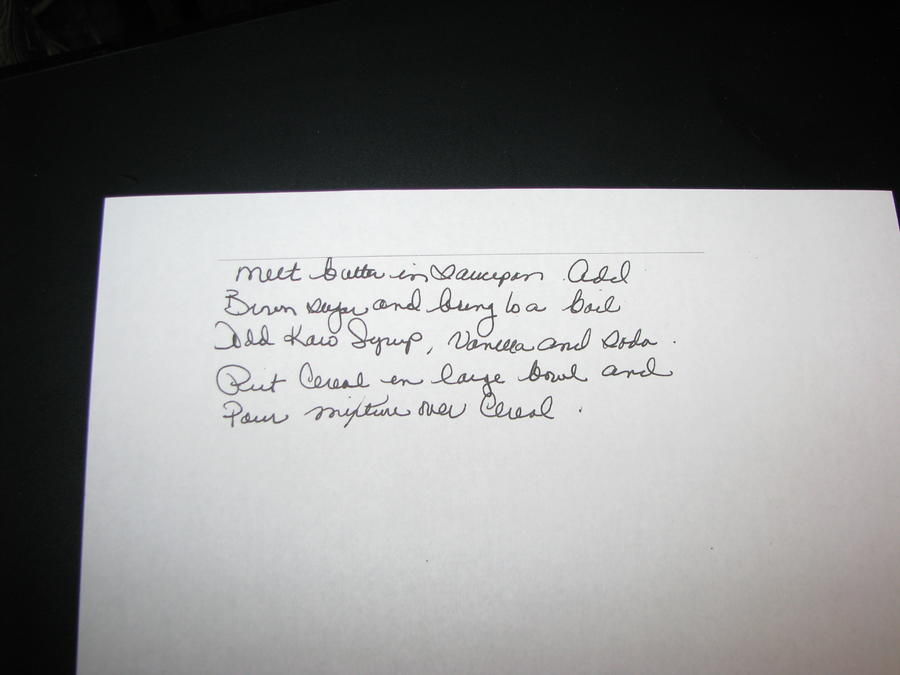 Melt butter in saucepan Add
Brown sugar and bring to a boil
Add Karo Syrup, Vanilla and soda.
Put Cereal in large bowl and
Pour mixture over Cereal.